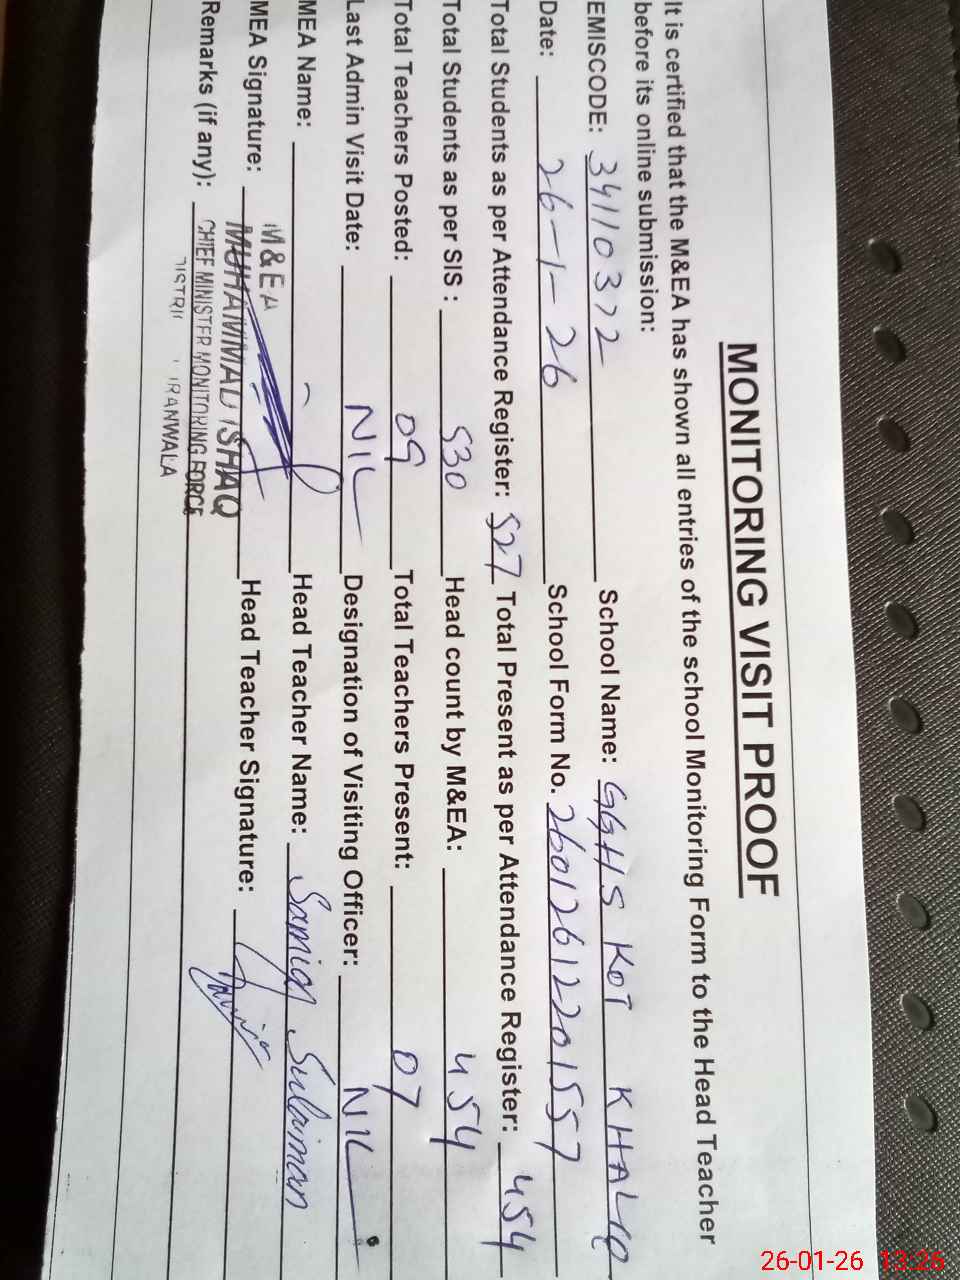 MONITORING VISIT PROOF
It is certified that the M&EA has shown all entries of the school Monitoring Form to the Head Teacher
before its online submission:
EMISCODE: 34110372 School Name: GGHS KOT KHALID
Date: 26-1-26 School Form No. 26012612201557
Total Students as per Attendance Register: 527 Total Present as per Attendance Register: 454
Total Students as per SIS : 530 Head count by M&EA: 454
Total Teachers Posted: 09 Total Teachers Present: 07
Last Admin Visit Date: NIL Designation of Visiting Officer: NIL
MEA Name: Head Teacher Name: Samia Sulaiman
MEA Signature: Head Teacher Signature:
Remarks (if any):
M&EA
MUHAMMAD ISHAQ
CHIEF MINISTER MONITORING FORCE
26-01-26 13:26